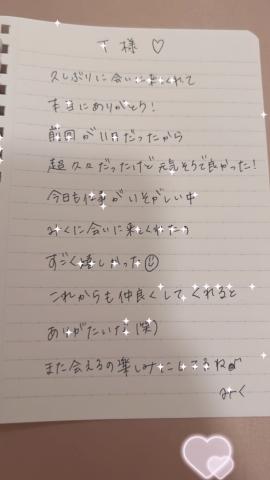 T 様 ♡
久しぶりに会いに来てくれて
本当にありがとう!
前回が11月だったから
超久々だったけど元気そうで良かった!
今日も仕事がいそがしい中
みくに会いに来てくれたの
すごく嬉しかった☺
これからも仲良くしてくれると
ありがたいな(笑)
また会えるの楽しみにしてるね
みく